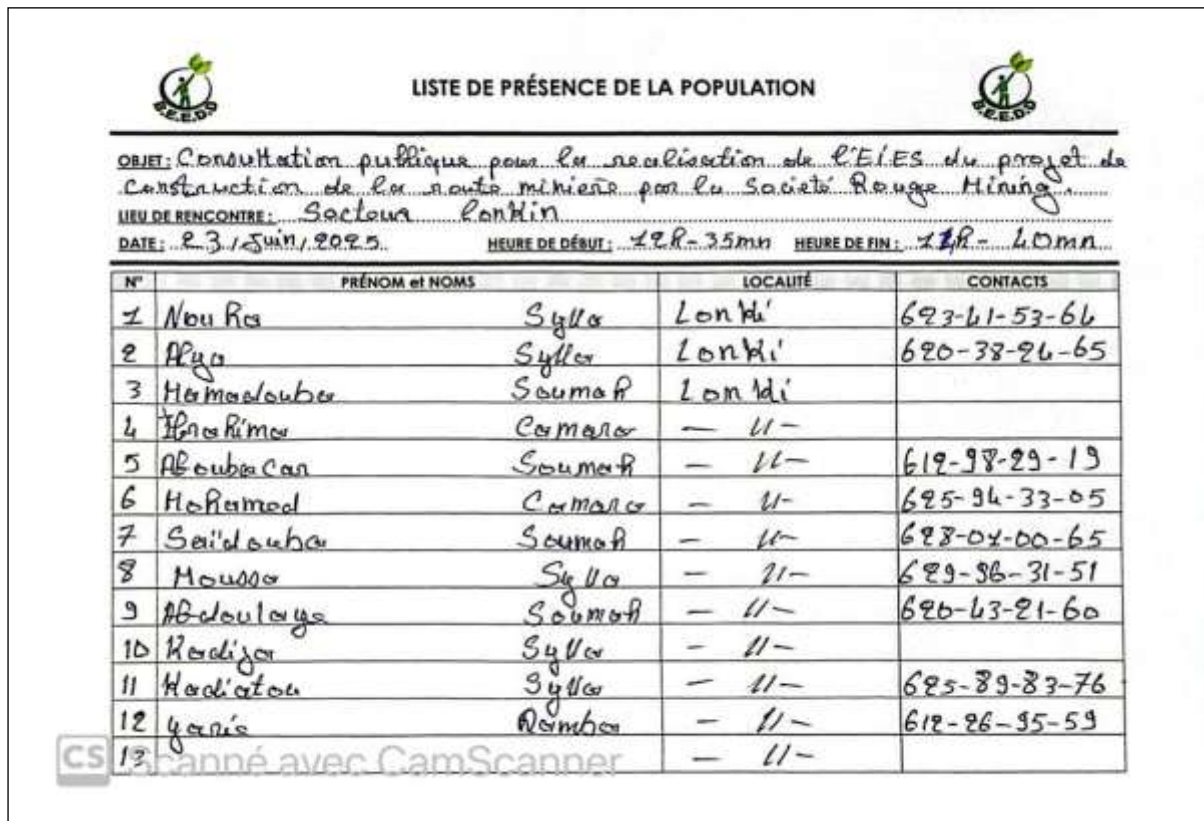 B.E.E.D.D
LISTE DE PRÉSENCE DE LA POPULATION
B.E.E.D.D
OBJET: Consultation publique pour la realisation de l'EIES du projet de
Construction de la route miniere par la Societé Rouge Mining.
LIEU DE RENCONTRE: Secteur Lonkin
DATE: 23/Juin/2025 HEURE DE DÉBUT: 12h-35mn HEURE DE FIN: h- 40mn
N° PRÉNOM et NOMS LOCALITÉ CONTACTS
1 Nou Ha Sylla Lonki 623-41-53-64
2 Alya Sylla Lonki 620-38-24-65
3 Mamadouba Soumah Lonki
4 Ibrahima Camara - 11-
5 Aboubacar Soumah - 11- 612-98-29-19
6 Mohamed Camara - 11- 625-94-33-05
7 Saïdouba Soumah - 11- 628-01-00-65
8 Moussa Sylla - 11- 629-96-31-51
9 Abdoulaye Soumah - 11- 620-43-21-60
10 Kadija Sylla - 11-
11 Hadiatou Sylla - 11- 625-89-83-76
12 Yarie - 11- 612-26-95-59
13 - 11-
CS Scanné avec CamScanner